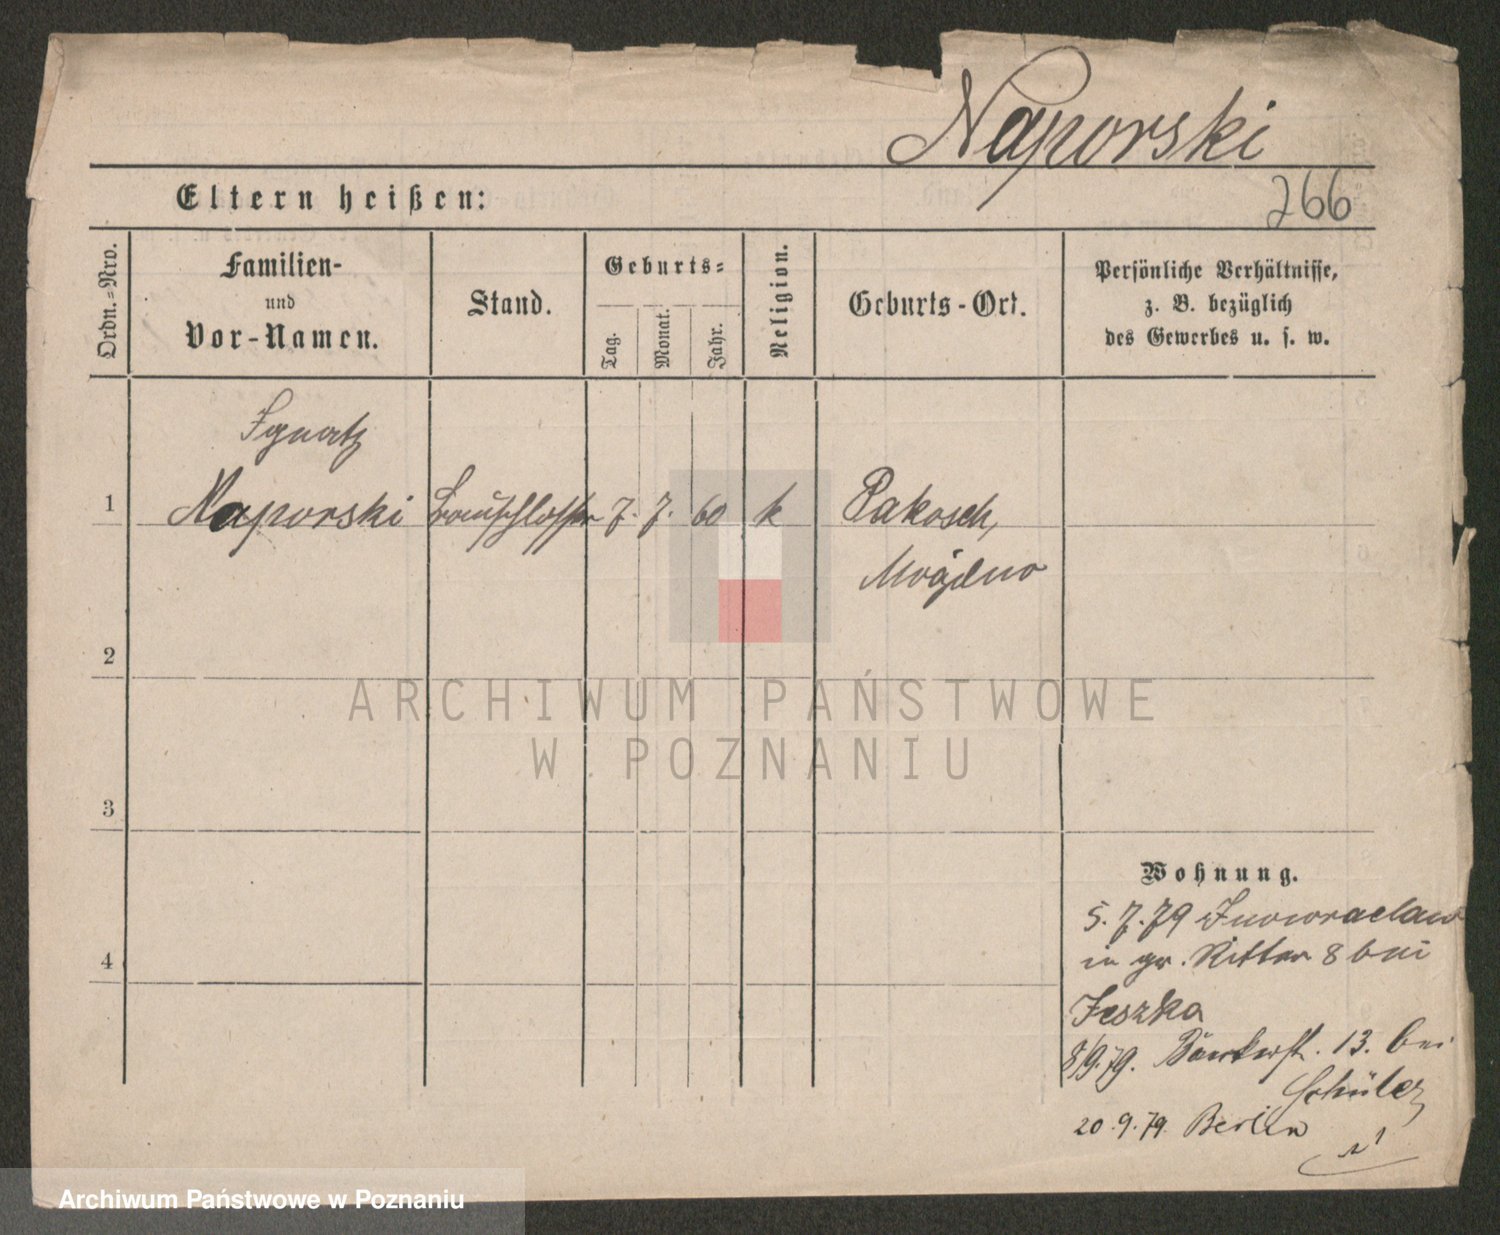 Naporski
266
Eltern heißen:
Ordn.=Nro.
Familien-
und
Vor-Namen.
Stand.
Geburts=
Tag.
Monat.
Jahr.
Religion.
Geburts-Ort.
Persönliche Verhältnisse,
z. B. bezüglich
des Gewerbes u. s. w.
Ignatz
1 Naporski Bauschlosser 7. 7. 60 k Pakosch,
2
3
4
Wohnung.
5. 7. 79 Inowraclaw
in gr. Ritter 8 bei
Jeszka
8/9. 79. Bäckerstr. 13. bei
Schüler
20. 9. 79. Berlin
ARCHIWUM PAŃSTWOWE
W POZNANIU
Archiwum Państwowe w Poznaniu